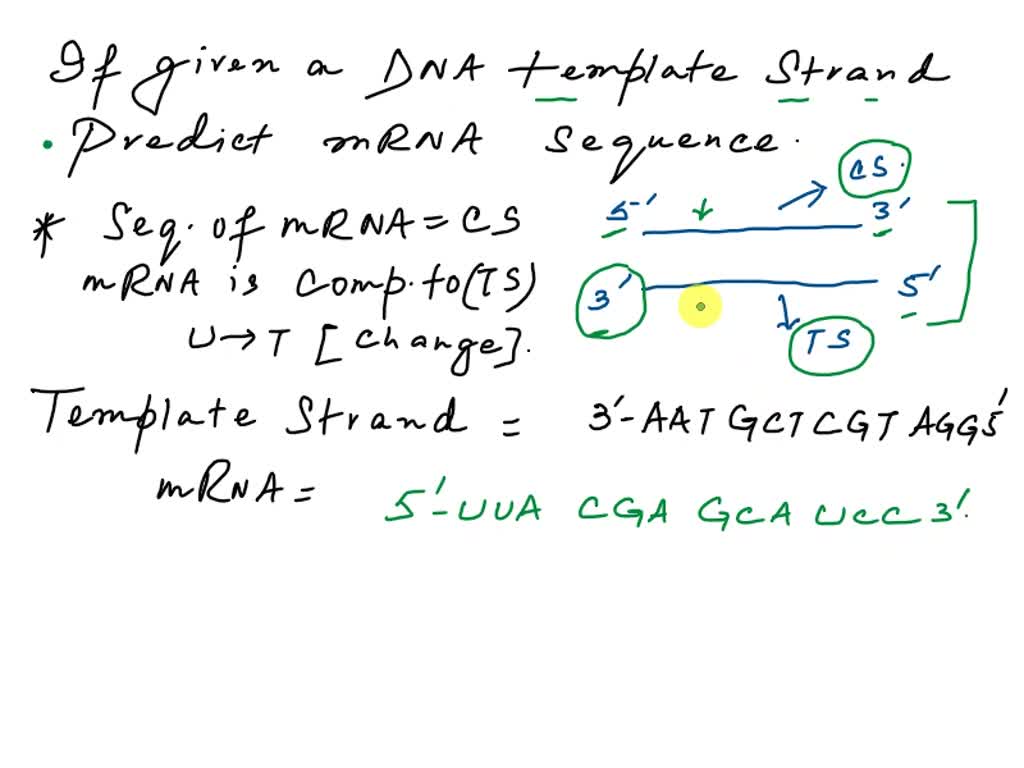 If given a DNA template Strand
• Predict mRNA Sequence.
CS.
* Seq. of mRNA = CS
5' 3'
mRNA is Comp. to (TS)
3' 5'
U → T [Change].
TS
Template Strand = 3'-AAT GCT CGT AGG5'
mRNA = 5'-UUA CGA GCA UCC 3'.